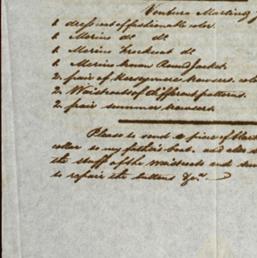 Ventura Martinez
1. dress coat of fashionable color.
1. Merino do. do.
1. Merino Frockcoat do.
1. Merino Round Jacket.
2. pair of Kerseymere trousers. color
2. Waistcoats of different patterns.
2. pair summer trousers.
Please to send a piece of black
collar to my father's coat. and also
the stuff of the waistcoats and
to repair the buttons &c.